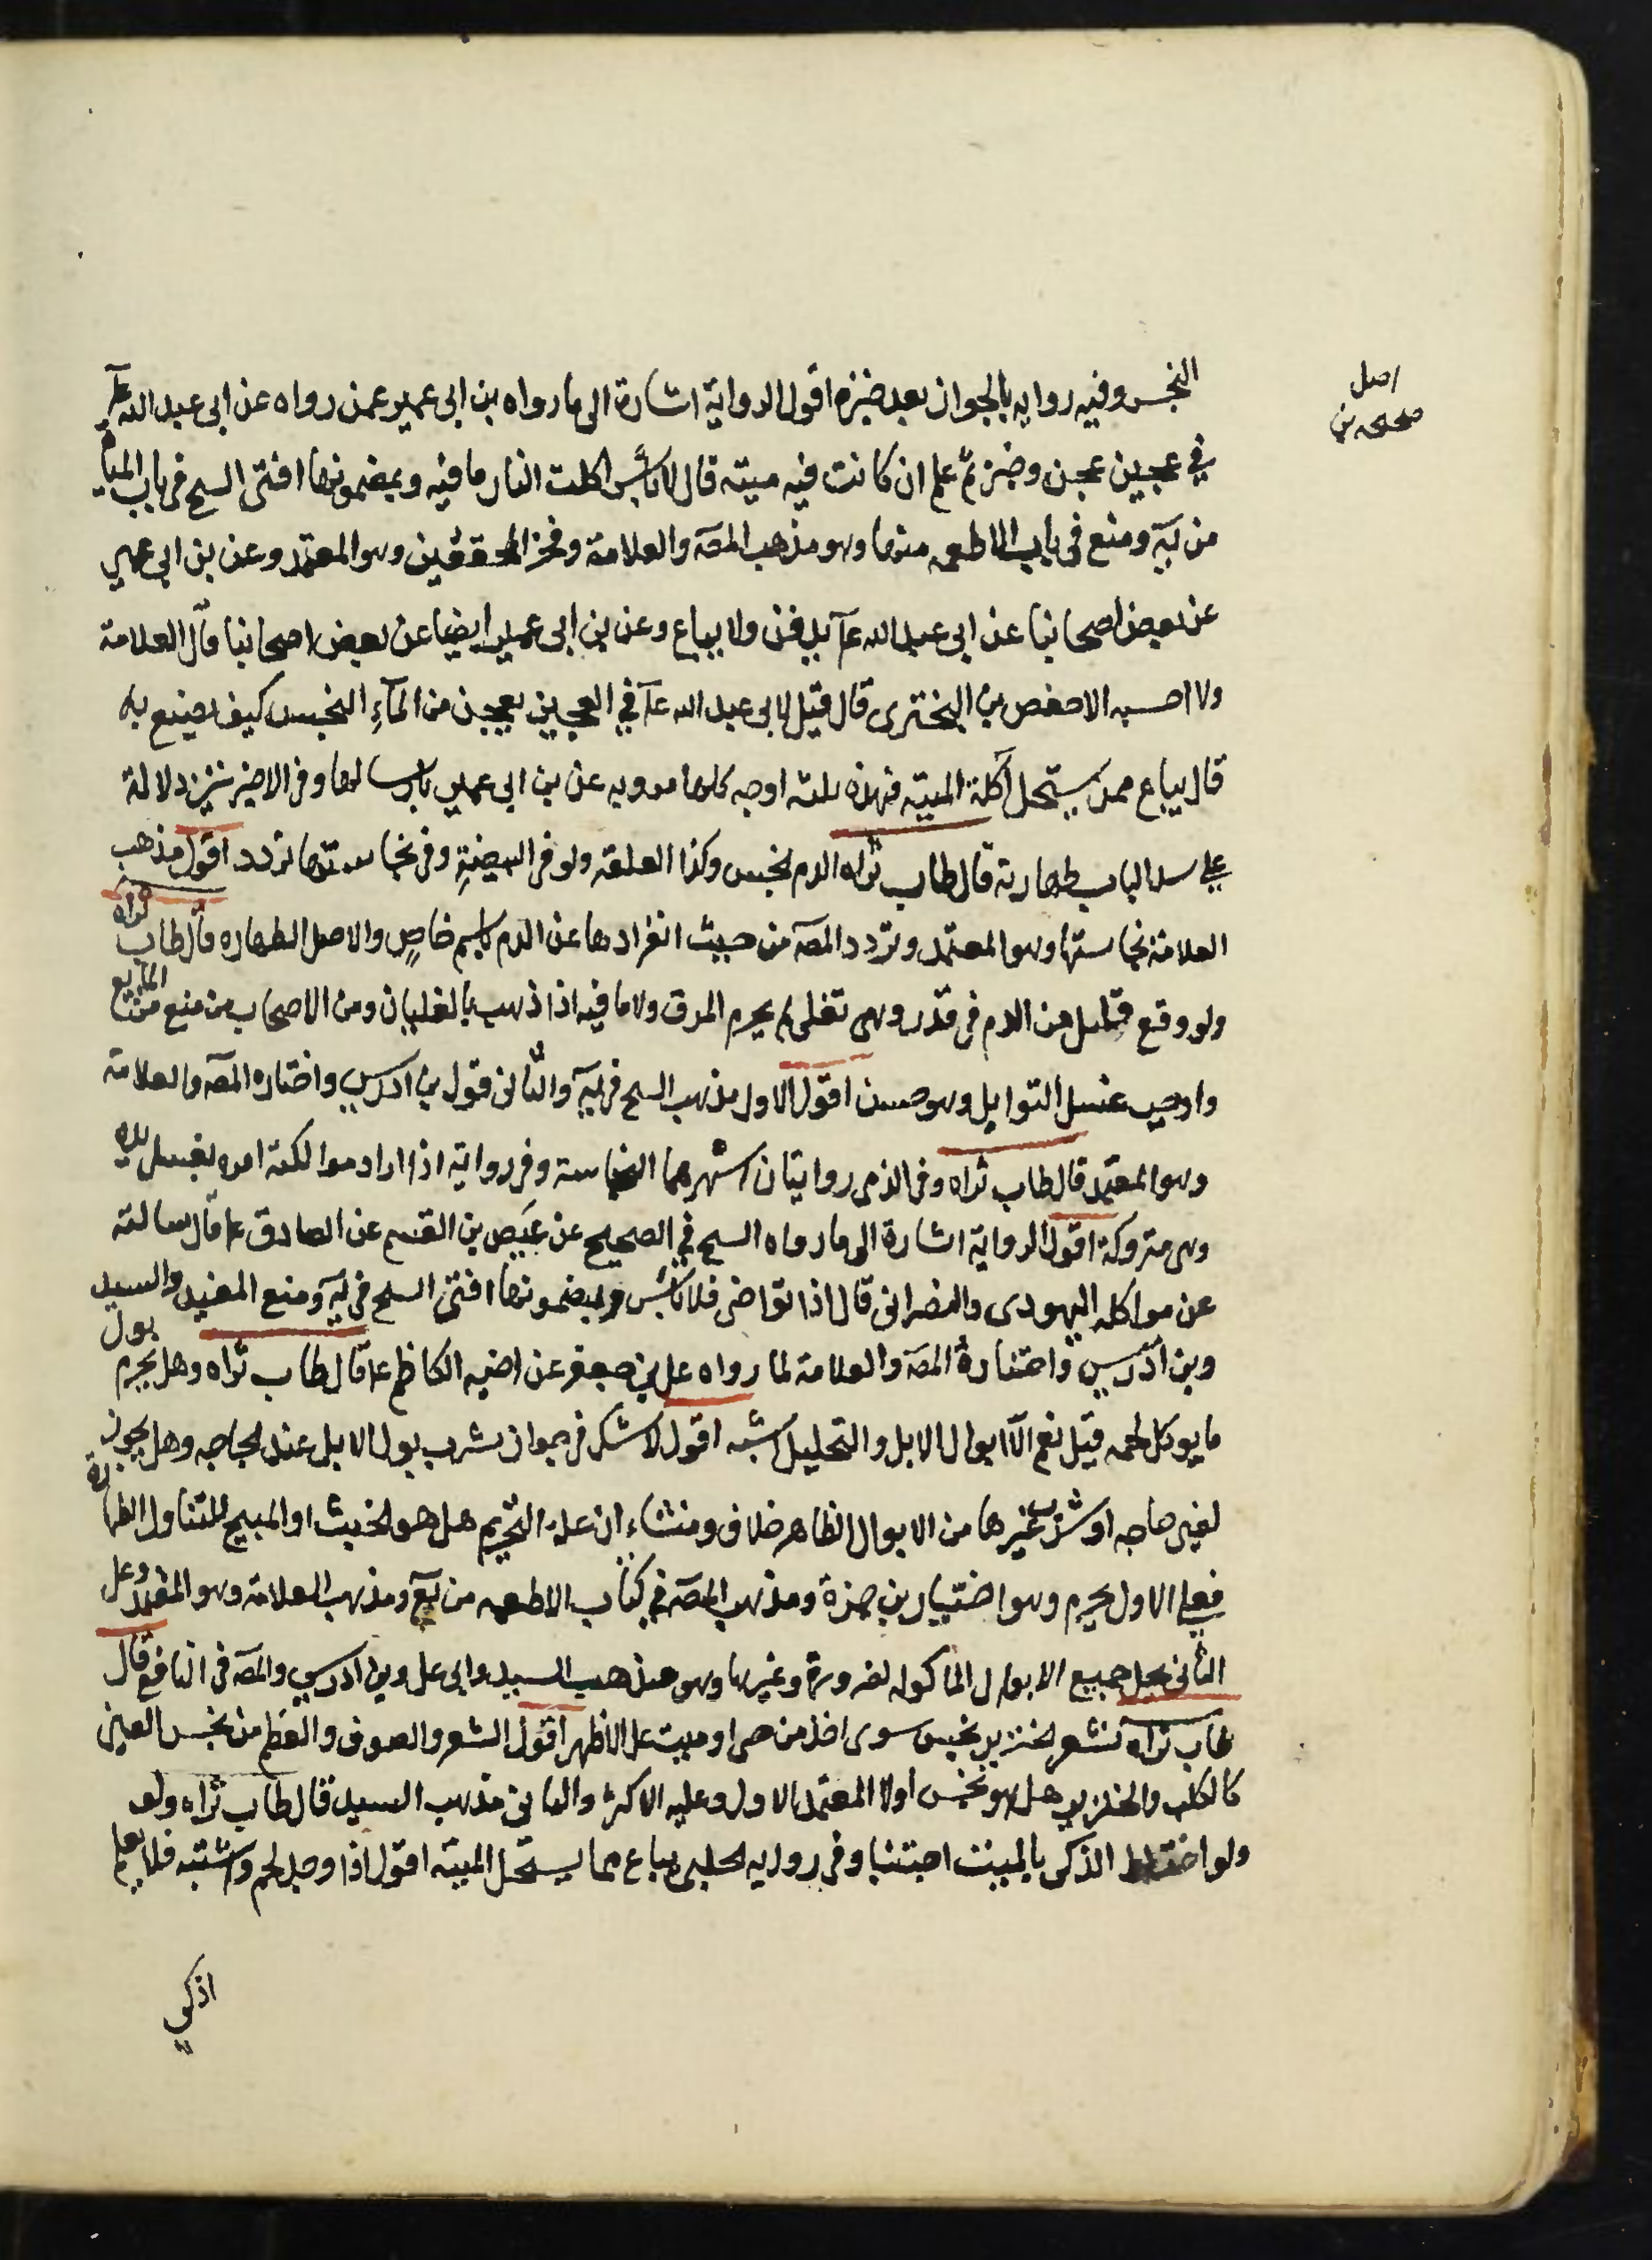 النجس وفيه روايه بالجواز بعد خبزه اقول الرواية اشارة الى ما رواه بن ابى عمير عمن رواه عن ابى عبد الله ع
في عجين عجن وخبز ثم علم ان كانت فيه ميته قال لا باس اكلت النار ما فيه وبمضمونها افتى الشيخ فى باب المياه
من يه ومنع فى باب الاطعمه منها وهو مذهب المصه والعلامة وفخر المحققين وهو المعتمد وعن بن ابى عمير
عن بعض اصحابنا عن ابى عبد الله ع يدفن ولا يباع وعن بن ابى عمير ايضا عن بعض اصحابنا قال العلامة
ولا احسبه الا حفص بن البخترى قال قيل لابى عبد الله ع في العجين يعجن من المآء النجس كيف يصنع به
قال يباع ممن يستحل اكلة الميته فهذه ثلثه اوجه كلها مرويه عن بن ابى عمير باسرها وفى الاخير دلالة
على سد الباب طهارته قال طاب ثراه الدم نجس وكذا العلقه ولو فى البيضة وفى نجاستها تردد اقول مذهب
العلامة نجاستها وهو المعتمد وتردد المصه من حيث انفرادها عن الدم باسم خاص والاصل الطهاره قال طاب ثراه
ولو وقع قليل من الدم فى قدر وهى تغلى لم يحرم المرق ولا ما فيه اذا ذهب بالغليان ومن الاصحاب من منع من المايع
واوجب غسل التوابل وهو حسن اقول الاول مذهب الشيخ فى يه والثانى قول بن ادريس واختاره المصه والعلامة
وهو المعتمد قال طاب ثراه وفى الذمى روايتان اشهرهما النجاسة وفى رواية اذا اراد مواكلته امره بغسل يده
وهى متروكة اقول الرواية اشارة الى ما رواه الشيخ في الصحيح عن عيص بن القسم عن الصادق ع قال سالته
عن مواكله اليهودى والنصرانى قال اذا توضى فلا باس وبمضمونها افتى الشيخ فى يه ومنع المفيد والسيد
وبن ادريس واختارة المصه والعلامة لما رواه على بن جعفر عن اخيه الكاظم ع قال طاب ثراه وهل يحرم بول
ما يوكل لحمه قيل نعم الا ابوال الابل والتحليل اشبه اقول لا شك فى جواز شرب بول الابل عند الحاجه وهل يجوز
لغير حاجه او شرب غيرها من الابوال الظاهر خلاف ومنشاء ان علة التحريم هل هو الخبث او المبيح للتناول الطهارة
فعلى الاول يحرم وهو اختيار بن حمزة ومذهب المصه في كتاب الاطعمه من يع ومذهب العلامة وهو المعتمد وعلى
الثانى يحل جميع الابوال الماكوله لضرورة وغيرها وهو مذهب السيد وابى على وبن ادريس والمصه فى النافع قال
طاب ثراه شعر الخنزير نجس سوى اخذ من حى او ميت على الاظهر اقول الشعر والصوف والعظم من نجس العين
كالكلب والخنزير هل هو نجس اولا المعتمد الاول وعليه الاكثر والثانى مذهب السيد قال طاب ثراه ولو
ولو اختلط الذكى بالميت اجتنبا وفى رواية الحلبى يباع مما يستحل الميته اقول اذا وجد لحم واشتبه فلا يعلم
اذكي
اصل